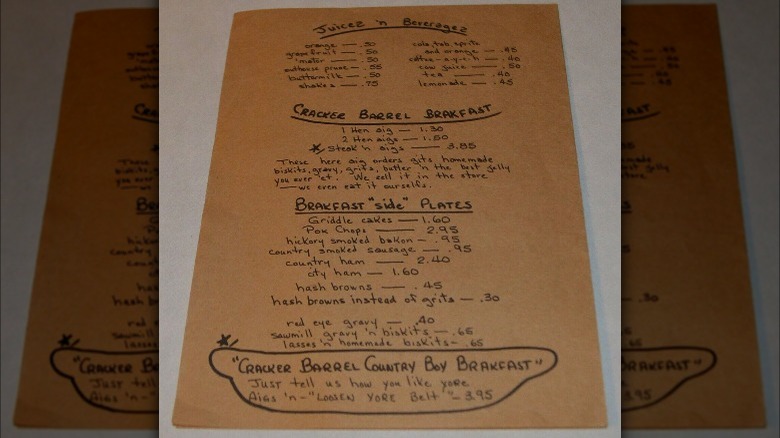 Juices 'n Beverages
orange — .50
grapefruit — .50
'mater — .50
outhouse prune — .55
buttermilk — .50
shakes — .75
cola, tab, sprite
and orange — .45
coffee - a-y-c-t-h — .40
cow juice — .50
tea — .40
lemonade — .45
CRACKER BARREL BRAKFAST
1 Hen aig — 1.30
2 Hen aigs — 1.50
Steak 'n aigs — 3.85
These here aig orders gits homemade
biskits, gravy, grits, butter 'n the best jelly
you ever 'et. We sell it in the store
— we even eat it ourselfs.
BRAKFAST "side" PLATES
Griddle cakes — 1.60
Pok Chops — 2.95
hickory smoked bakon — .95
country smoked sausage — .95
country ham — 2.40
city ham — 1.60
hash browns — .45
hash browns instead of grits — .30
red eye gravy — .40
sawmill gravy 'n biskits — .65
lasses 'n homemade biskits — .65
"CRACKER BARREL COUNTRY BOY BRAKFAST"
Just tell us how you like yore
Aigs 'n - "LOOSEN YORE Belt" — 3.95